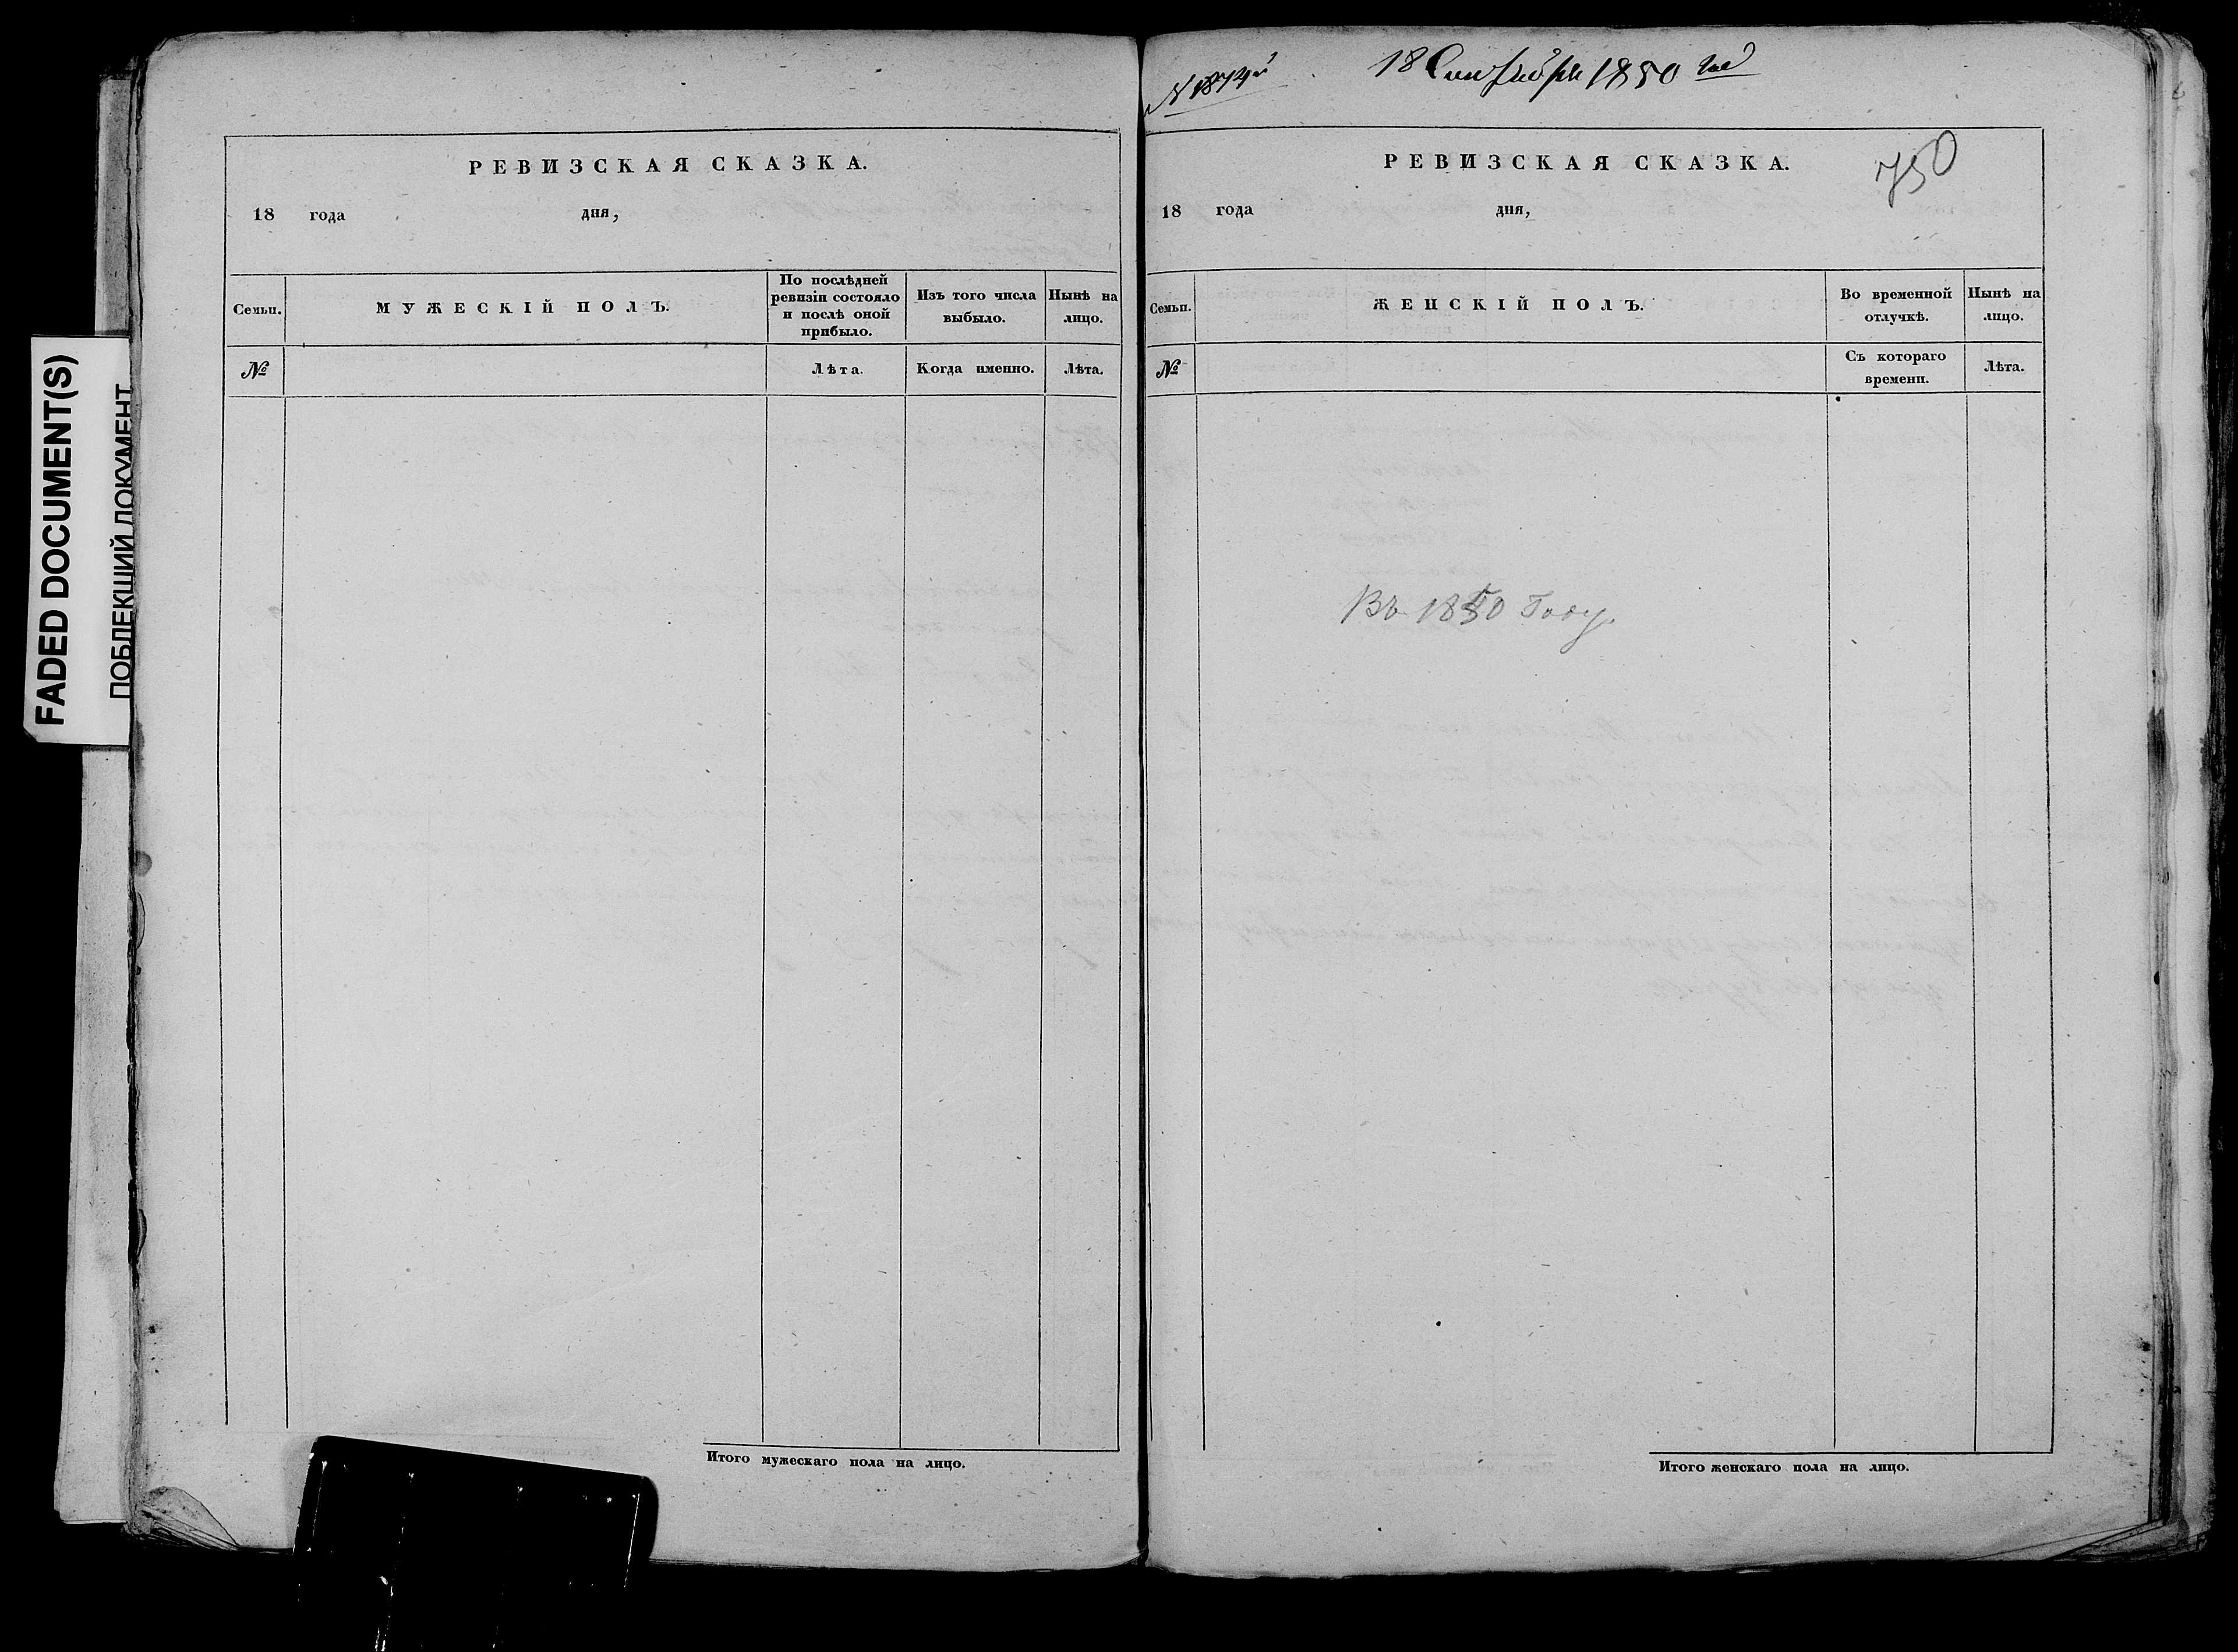 FADED DOCUMENT(S)
ПОБЛЕКШИЙ ДОКУМЕНТ
РЕВИЗСКАЯ СКАЗКА.
18 года дня,
Семьи.
МУЖЕСКІЙ ПОЛЪ.
По послѣдней
ревизіи состояло
и послѣ оной
прибыло.
Изъ того числа
выбыло.
Нынѣ на
лицо.
№
Лѣта.
Когда именно.
Лѣта.
Итого мужескаго пола на лицо.
18 Сентября 1850 год
РЕВИЗСКАЯ СКАЗКА.
750
18 года дня,
Семьи.
ЖЕНСКІЙ ПОЛЪ.
Во временной
отлучкѣ.
Нынѣ на
лицо.
№
Съ котораго
времени.
Лѣта.
Въ 1850 Году.
Итого женскаго пола на лицо.